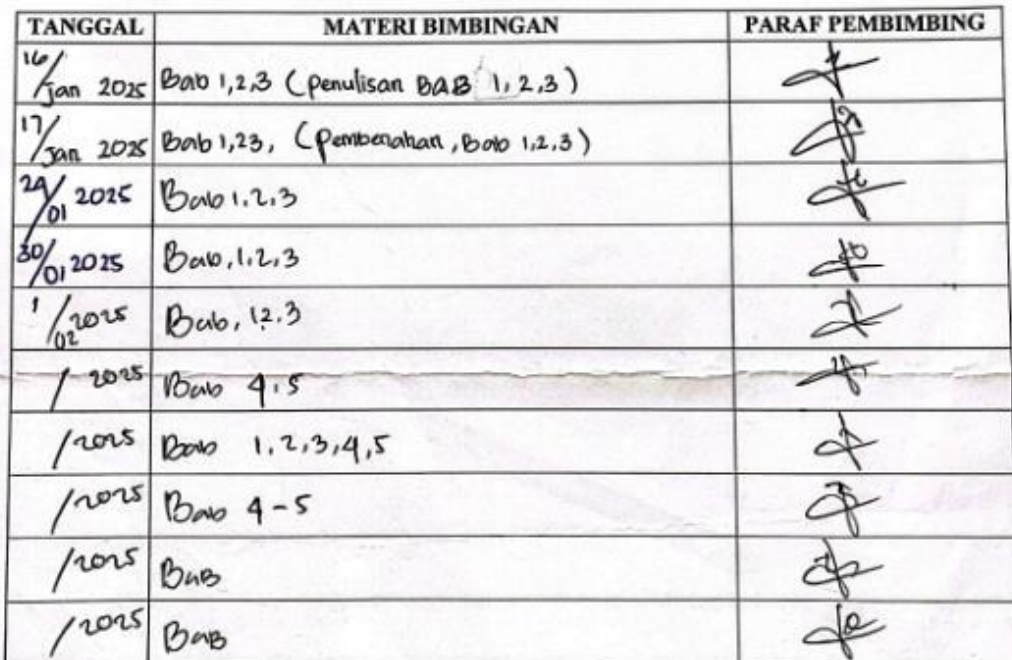 TANGGAL MATERI BIMBINGAN PARAF PEMBIMBING
16/Jan 2025 Bab 1,2,3 (penulisan BAB 1,2,3)
17/Jan 2025 Bab 1,23, (Pembenahan, Bab 1,2,3)
29/01 2025 Bab 1,2,3
30/01 2025 Bab, 1,2,3
1/02 2025 Bab, 12.3
/ 2025 Bab 4,5
/2025 Bab 1,2,3,4,5
/2025 Bab 4-5
/2025 BaB
/2025 BaB